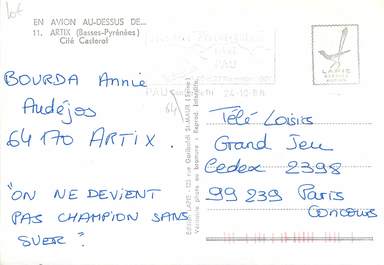 EN AVION AU-DESSUS DE...
11. ARTIX (Basses-Pyrénées)
Cité Casterol
BOURDA Annie
Audéjos
64170 ARTIX.
"ON NE DEVIENT
PAS CHAMPION SANS
SUER".
PAU
PAU
24-10-88
64
LAPIE
Édition LAPIE - 123 rue Garibaldi St-MAUR (Seine)
Véritable photo au bromure - Reprod. interdite
Télé Loisirs
Grand Jeu
Cedex 2398
99 239 Paris
Concours